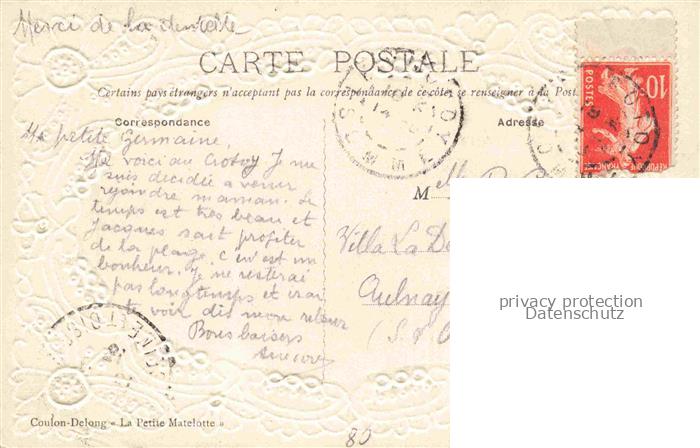 Merci de la
CARTE POSTALE
Certains pays étrangers n'acceptant pas la correspondance de ce côté, se renseigner à la Poste
Correspondance
Adresse
Ma petite Germaine,
Me voici au Crotoy Je me
suis décidée a venir
rejoindre maman. Le
temps est très beau et
Jacques sait profiter
de la plage. C'est un
bonheur. Je ne resterai
pas longtemps et irai
te voir dès mon retour
Bons baisers
M
elle
Villa La
Aulnay
(S.
10
POSTES
Coulon-Delong « La Petite Matelotte »
80
privacy protection
Datenschutz